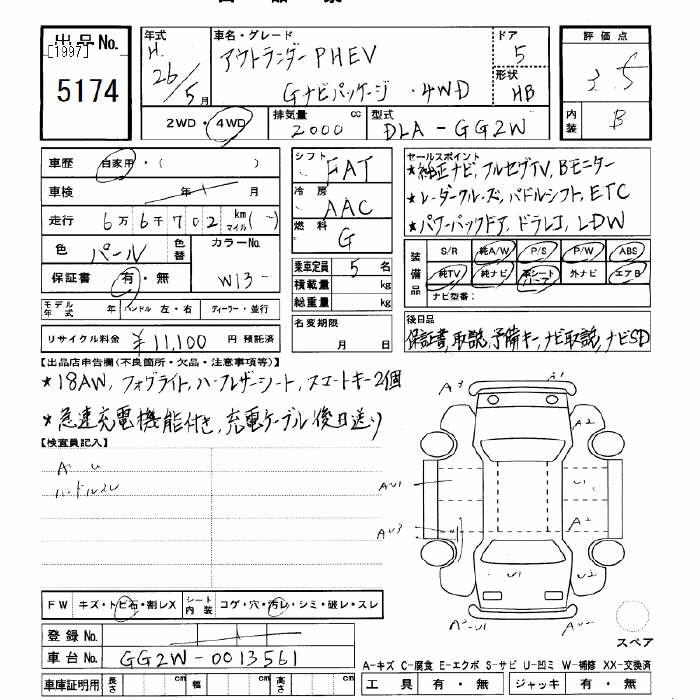 出品No. [1997] 5174
年式 H. 26/5月
車名・グレード アウトランダーPHEV
Gナビパッケージ・4WD
ドア 5
形状 HB
評価点 3.5
内装 B
2WD・4WD
排気量 2000 cc
型式 DLA-GG2W
車歴 自家用・( )
車検 年 月
走行 6万6千702 km マイル
色 パール 色替
カラーNo. W13
保証書 有・無
モデル年式 ハンドル 左・右 ディーラー・並行
リサイクル料金 ¥11,100 円 預託済
シフト FAT
冷房 AAC
燃料 G
乗車定員 5名
積載量 kg
総重量 kg
名変期限 月 日
セールスポイント
★純正ナビ,フルセグTV,Bモニター
★レーダークルーズ,パドルシフト,ETC
★パワーバックドア,ドラレコ,LDW
装備品 S/R 純A/W P/S P/W ABS
純TV 純ナビ 革シート 外ナビ エアB
ナビ型番:
後日品
保証書,取説,予備キー,ナビ取説,ナビSD
【出品店申告欄(不良箇所・欠品・注意事項等)】
★18AW,フォグライト,ハーフレザーシート,スマートキー2個
★急速充電機能付き,充電ケーブル後日送り
【検査員記入】
A U
ハンドルスレ
A3
A1
A2
AU1
U1
AU3
A2
U1
U2
AU2
FW キズ・トビ石・割レX
シート内装 コゲ・穴・汚レ・シミ・破レ・スレ
登録No.
車台No. GG2W-0013561
車庫証明用 長さ cm 幅 cm 高さ cm
スペア
A-キズ C-腐食 E-エクボ S-サビ U-凹ミ W-補修 XX-交換済
工具 有・無 ジャッキ 有・無